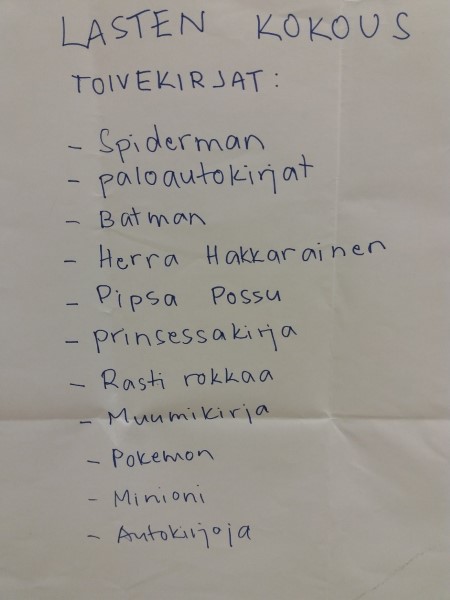 LASTEN KOKOUS
TOIVEKIRJAT:
- Spiderman
- paloautokirjat
- Batman
- Herra Hakkarainen
- Pipsa Possu
- prinsessakirja
- Rasti rokkaa
- Muumikirja
- Pokemon
- Minioni
- Autokirjoja